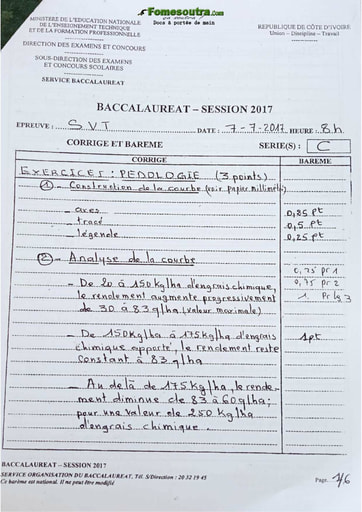 Fomesoutra.com
ça soutra !
Docs à portée de main
MINISTERE DE L'EDUCATION NATIONALE
DE L'ENSEIGNEMENT TECHNIQUE
ET DE LA FORMATION PROFESSIONNELLE
REPUBLIQUE DE CÔTE D'IVOIRE
Union – Discipline – Travail
DIRECTION DES EXAMENS ET CONCOURS
SOUS-DIRECTION DES EXAMENS
ET CONCOURS SCOLAIRES
SERVICE BACCALAUREAT
BACCALAUREAT – SESSION 2017
EPREUVE : SVT DATE : 7-7-2017 HEURE : 8h
CORRIGE ET BAREME SERIE(S) : C
CORRIGE BAREME
EXERCICE 1 : PEDOLOGIE (3 points)
① - Construction de la courbe (voir papier millimétré)
- axes 0,25 pt
- tracé 0,5 pt
- légende 0,25 pt
② - Analyse de la courbe
0,75 pr 1
- De 20 à 150 kg/ha d'engrais chimique, 0,75 pr 2
le rendement augmente progressivement 1 pr 3
de 30 à 83 q/ha (valeur maximale)
- De 150 kg/ha à 175 kg/ha d'engrais 1pt
chimique apporté, le rendement reste
constant à 83 q/ha
- Au delà de 175 kg/ha, le rende-
ment diminue de 83 à 60 q/ha;
pour une valeur de 250 kg/ha
d'engrais chimique.
BACCALAUREAT – SESSION 2017
SERVICE ORGANISATION DU BACCALAUREAT, Tél. S/Direction : 20 32 19 45
Ce barème est national. Il ne peut être modifié
Page 1/6